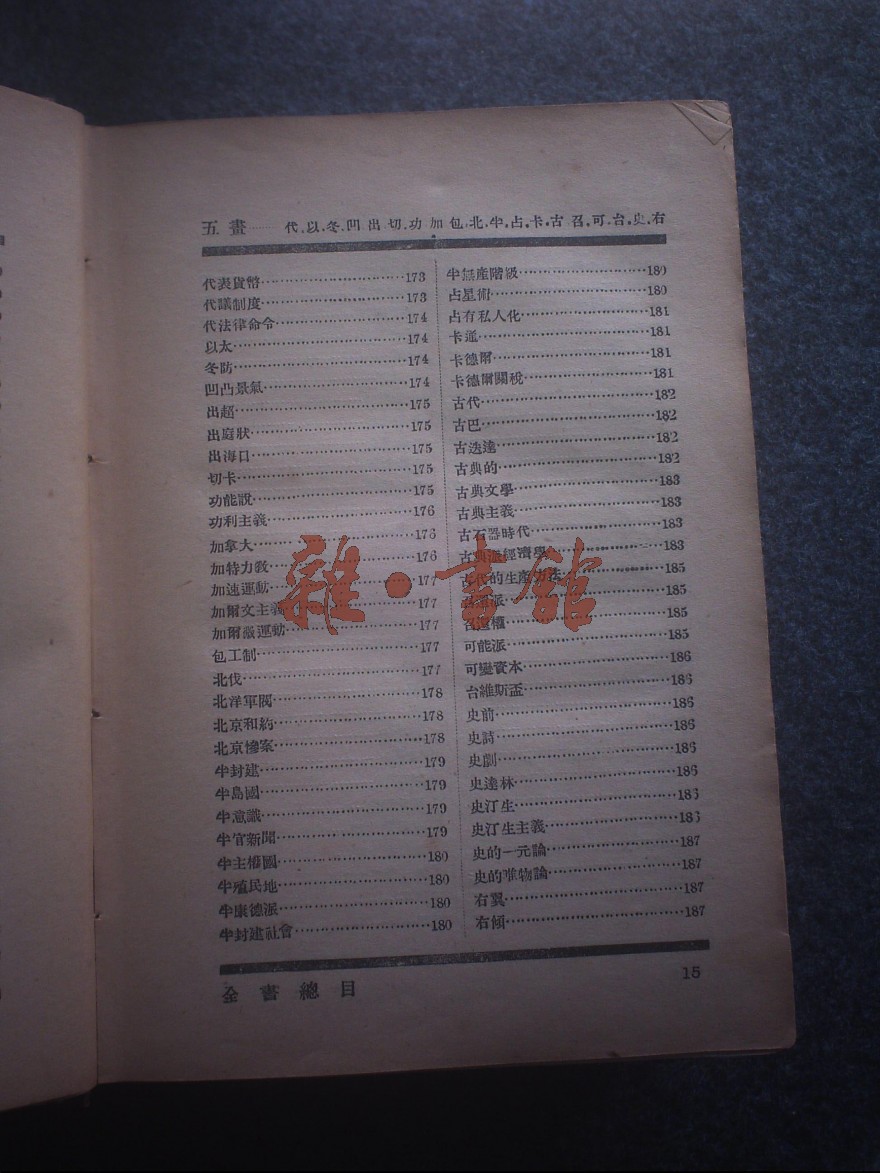 五畫……代.以.冬.凹.出.切.功.加.包.北.半.占.卡.古.召.可.台.史.右
代表貨幣…173
代議制度…173
代法律命令…174
以太…174
冬防…174
凹凸景氣…174
出超…175
出庭狀…175
出海口…175
切卡…175
功能說…175
功利主義…176
加拿大…176
加特力教…176
加速運動…177
加爾文主義…177
加爾嚴運動…177
包工制…177
北伐…177
北洋軍閥…178
北京和約…178
北京慘案…178
半封建…179
半島國…179
半意識…179
半官新聞…179
半主權國…180
半殖民地…180
半康德派…180
半封建社會…180
半無產階級…180
占星術…180
占有私人化…181
卡通…181
卡德爾…181
卡德爾關稅…181
古代…182
古巴…182
古迭達…182
古典的…182
古典文學…183
古典主義…183
古石器時代…183
古典派經濟學…183
古代的生產方法…185
派…185
召還權…185
可能派…185
可變資本…186
台維斯盃…186
史前…186
史詩…186
史劇…186
史達林…186
史汀生…186
史汀生主義…186
史的一元論…187
史的唯物論…187
右翼…187
右傾…187
全書總目
15
雜·書館